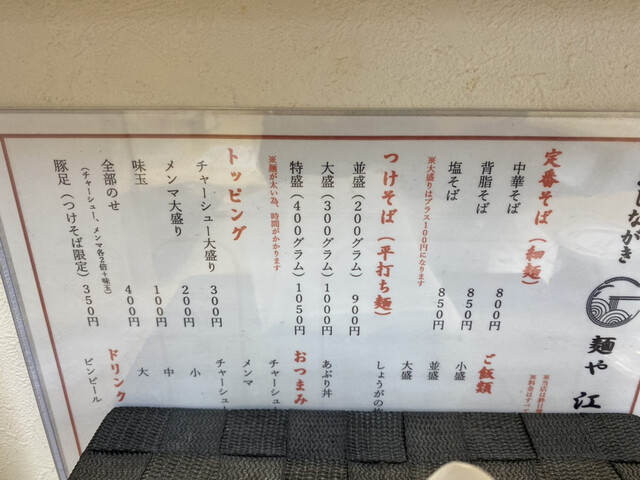 ながき
麺や 江
定番そば（細麺）
中華そば 800円
背脂そば 850円
塩そば 850円
※大盛りはプラス100円になります
つけそば（平打ち麺）
並盛（200グラム） 900円
大盛（300グラム） 1000円
特盛（400グラム） 1050円
※麺が太い為、時間がかかります
トッピング
チャーシュー大盛り 300円
メンマ大盛り 200円
味玉 100円
全部のせ 400円
（チャーシュー、メンマ各2倍+味玉）
豚足（つけそば限定） 350円
ご飯類
小盛
並盛
大盛
しょうがの
あぶり丼
おつまみ
チャーシュ
メンマ
チャーシュ
小
中
大
ドリンク
ビンビール